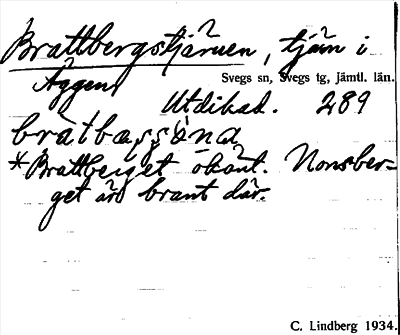 Brattbergstjärnen, tjärn i
Äggen,
Svegs sn, Svegs tg, jämtl. län.
Utdikad. 289
*Brattberget okänt. Nonsber=
get är brant där.
C. Lindberg 1934.